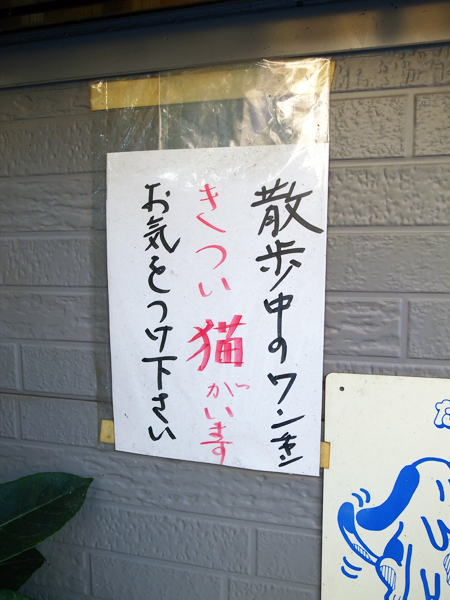 散歩中のワンチャン
きつい猫がいます
お気をつけ下さい